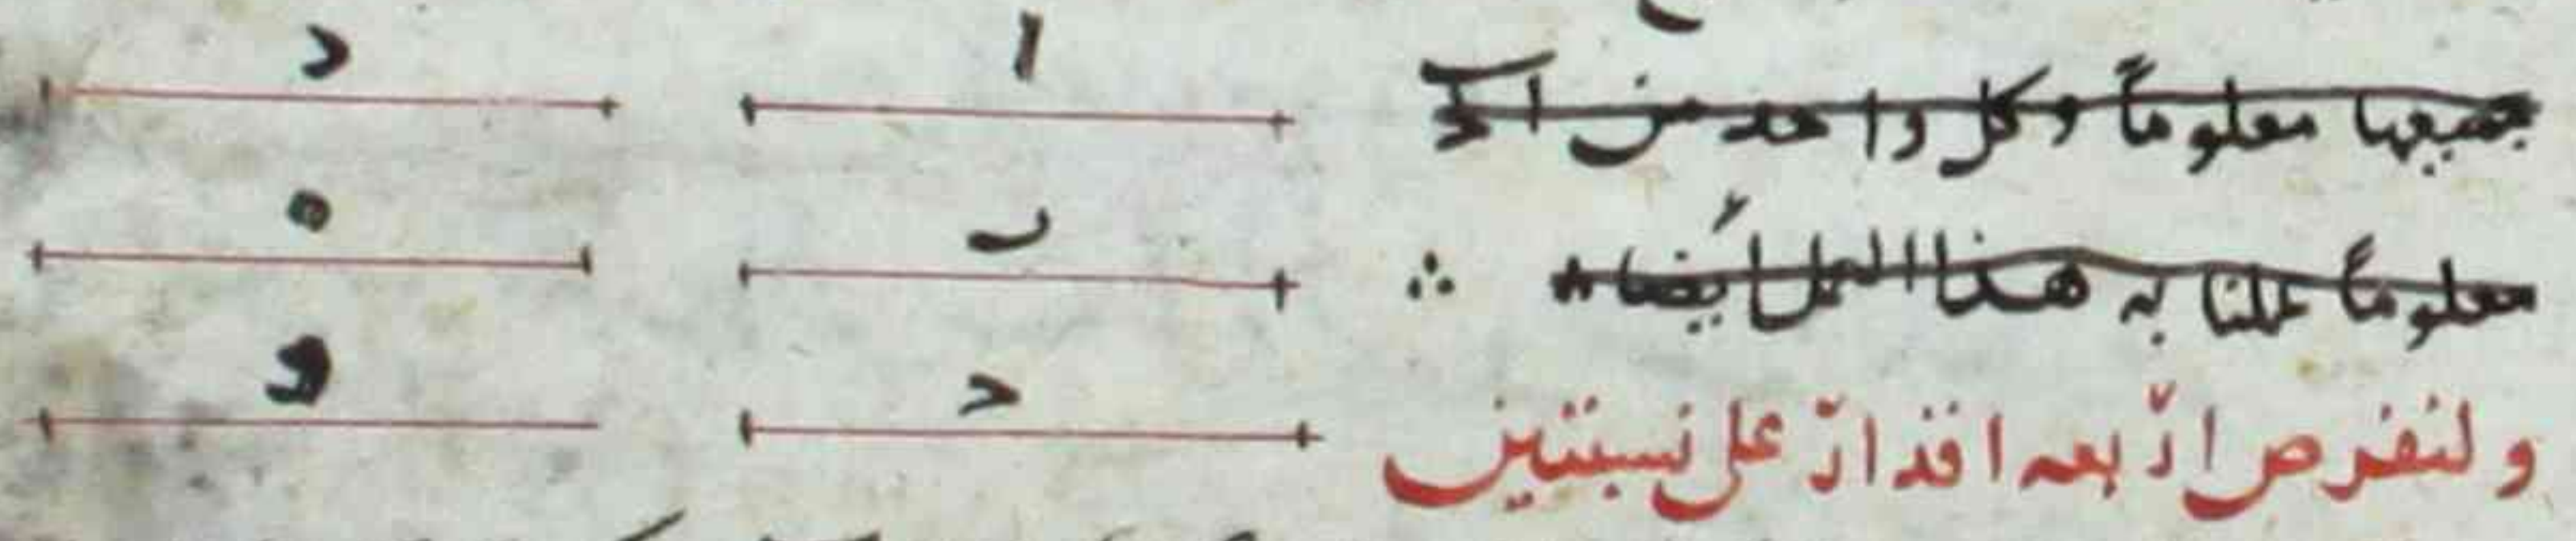 جميعها معلوماً وكل واحد من ا
معلوماً عملنا به هذا العمل ايضا
ولنفرض اربعه اقدار على نسبتين
ا د
ب ه
ح و